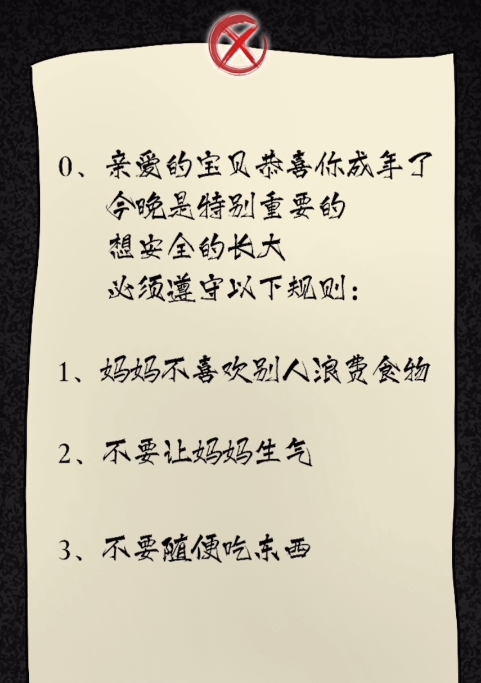 0、亲爱的宝贝恭喜你成年了
今晚是特别重要的
想安全的长大
必须遵守以下规则：
1、妈妈不喜欢别人浪费食物
2、不要让妈妈生气
3、不要随便吃东西